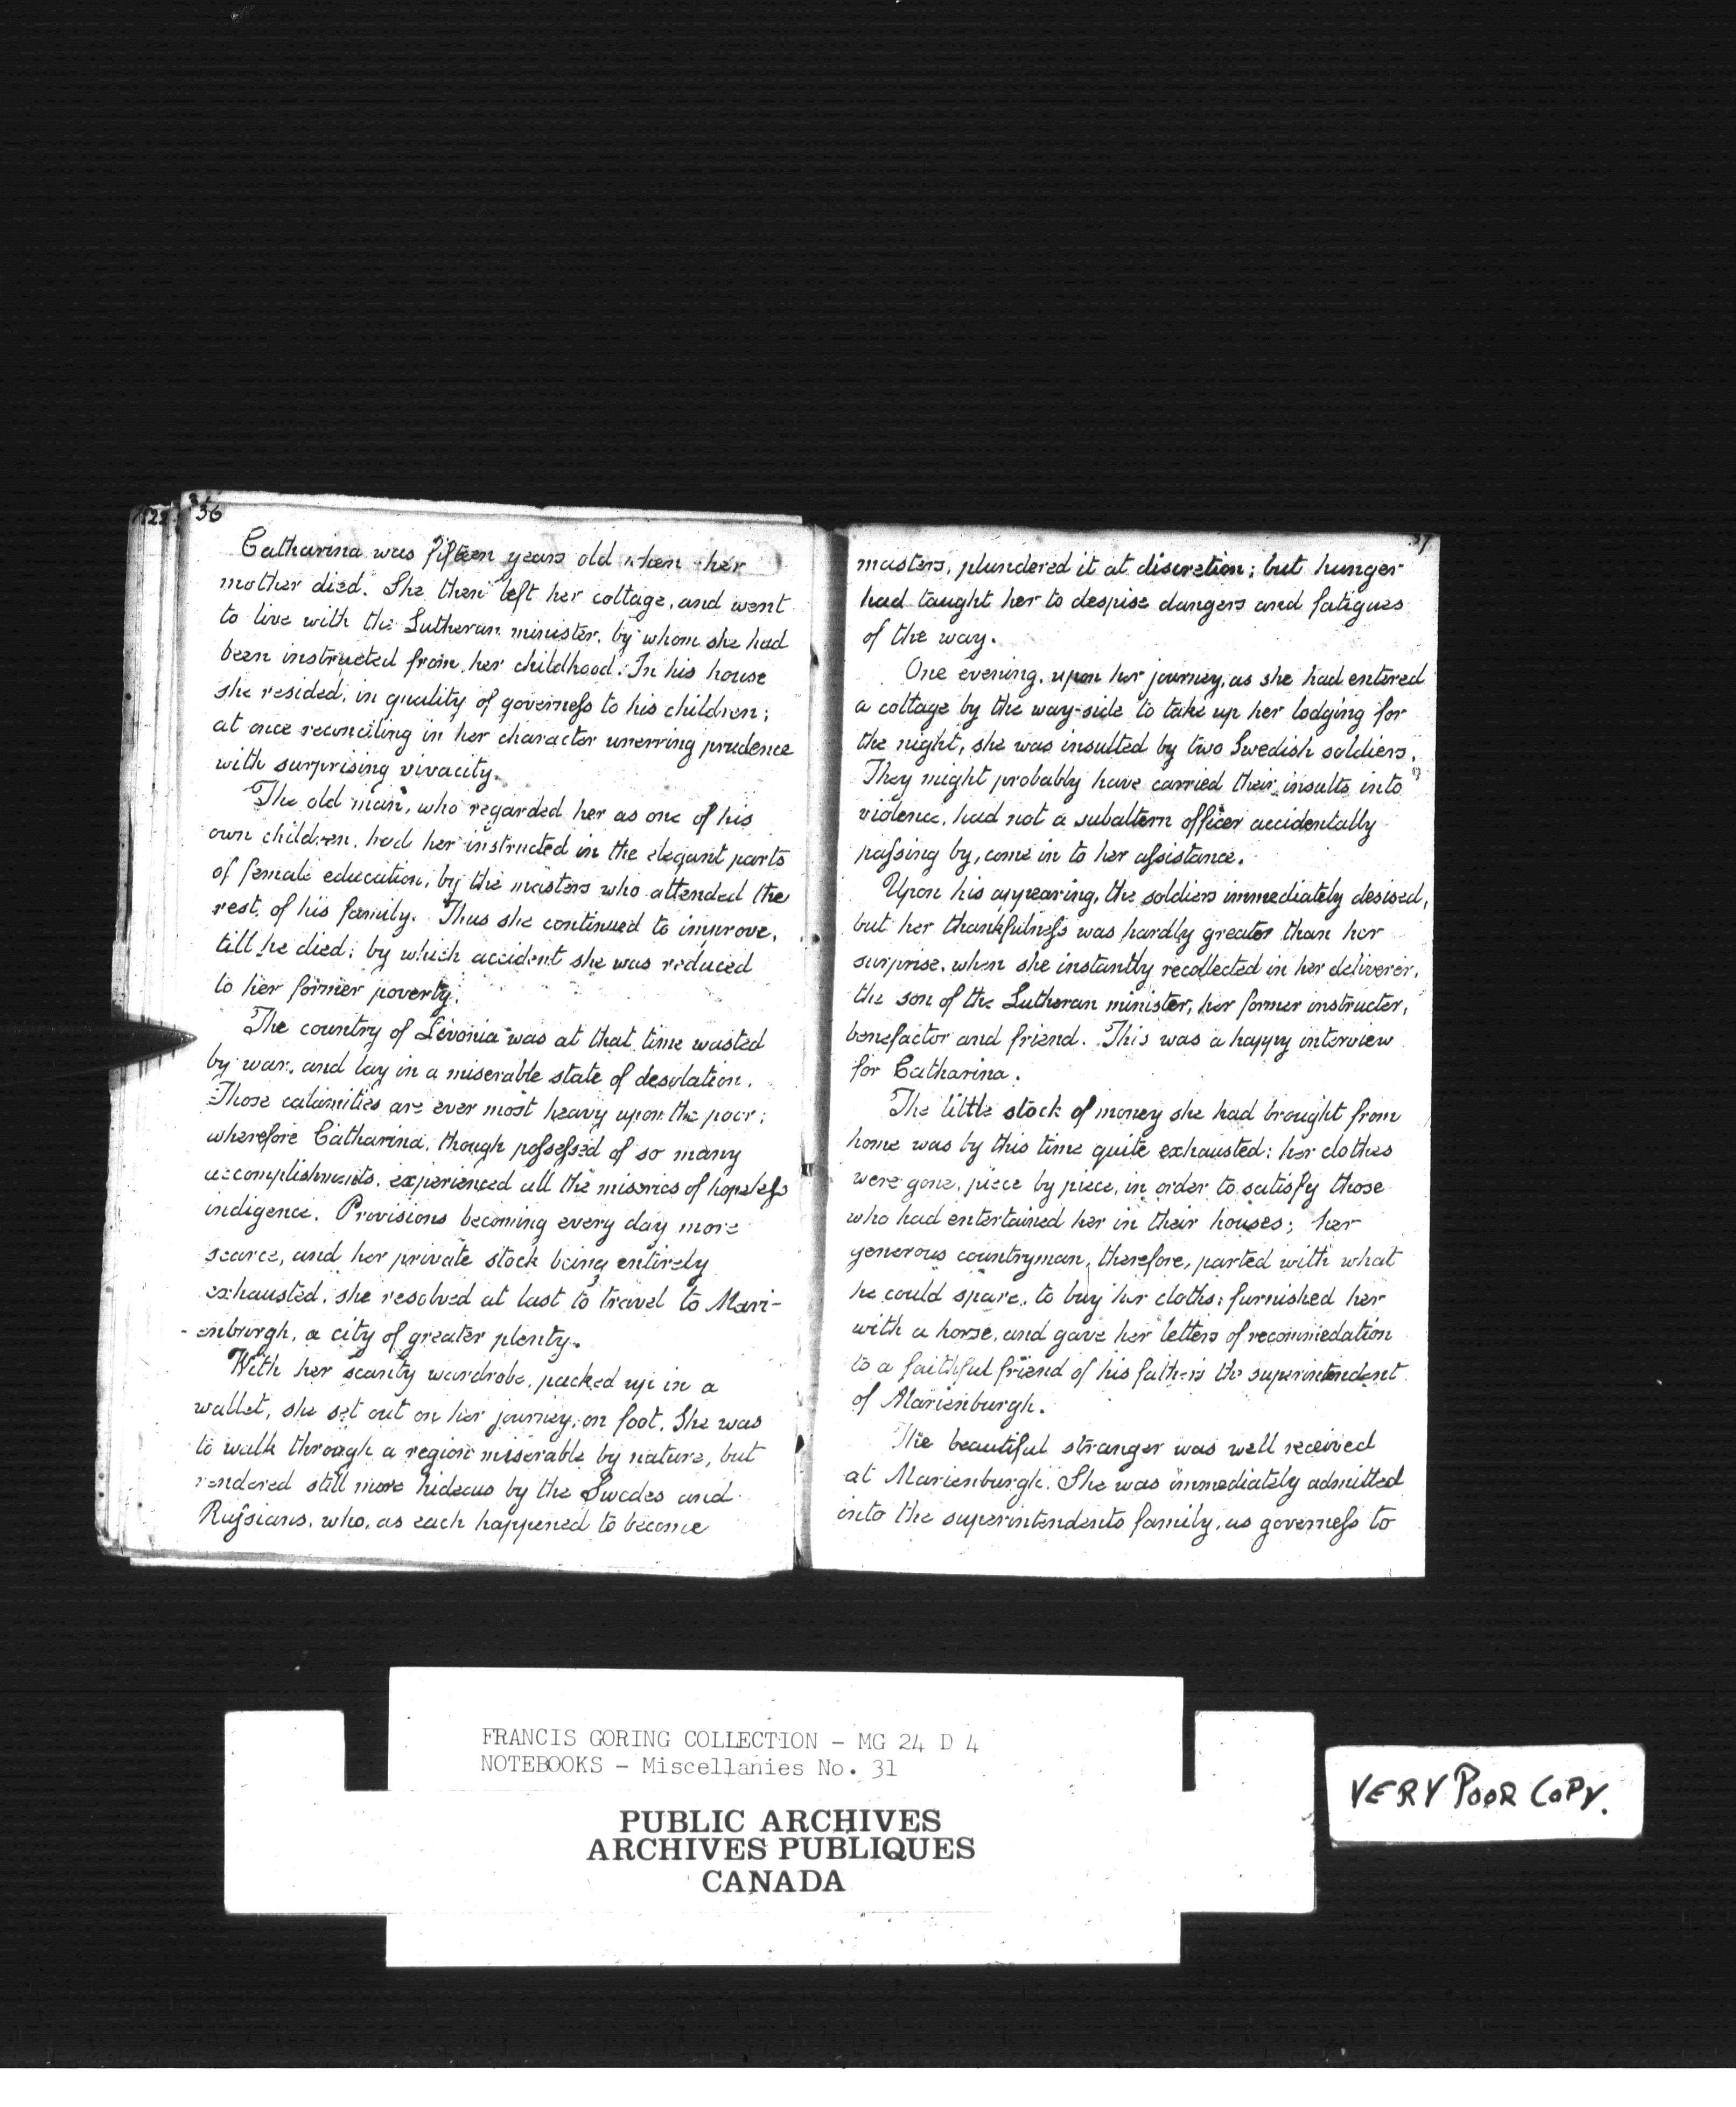 36
Catharina was fifteen years old when her
mother died. She then left her cottage, and went
to live with the Lutheran minister, by whom she had
been instructed from her childhood. In his house
she resided, in quality of governess to his children;
at once reconciling in her character unerring prudence
with surprising vivacity.
The old man, who regarded her as one of his
own children, had her instructed in the elegant parts
of female education, by the masters who attended the
rest of his family. Thus she continued to improve,
till he died; by which accident she was reduced
to her former poverty.
The country of Livonia was at that time wasted
by war, and lay in a miserable state of desolation.
Those calamities are ever most heavy upon the poor;
wherefore Catharina, though possessed of so many
accomplishments, experienced all the miseries of hopeless
indigence. Provisions becoming every day more
scarce, and her private stock being entirely
exhausted, she resolved at last to travel to Mari-
-enburgh, a city of greater plenty.
With her scanty wardrobe, packed up in a
wallet, she set out on her journey, on foot. She was
to walk through a region miserable by nature, but
rendered still more hideous by the Swedes and
Russians, who, as each happened to become
37
masters, plundered it at discretion; but hunger
had taught her to despise dangers and fatigues
of the way.
One evening, upon her journey, as she had entered
a cottage by the way-side to take up her lodging for
the night, she was insulted by two Swedish soldiers.
They might probably have carried their insults into
violence, had not a subaltern officer accidentally
passing by, come in to her assistance.
Upon his appearing, the soldiers immediately desised,
but her thankfulness was hardly greater than her
surprise, when she instantly recollected in her deliverer,
the son of the Lutheran minister, her former instructer,
benefactor and friend. This was a happy interview
for Catharina.
The little stock of money she had brought from
home was by this time quite exhausted; her clothes
were gone, piece by piece, in order to satisfy those
who had entertained her in their houses; her
generous countryman, therefore, parted with what
he could spare, to buy her cloths; furnished her
with a horse, and gave her letters of recommedation
to a faithful friend of his father's the superintendent
of Marienburgh.
The beautiful stranger was well received
at Marienburgh. She was immediately admitted
into the superintendents family, as governess to
FRANCIS GORING COLLECTION - MG 24 D 4
NOTEBOOKS - Miscellanies No. 31
PUBLIC ARCHIVES
ARCHIVES PUBLIQUES
CANADA
VERY POOR COPY.